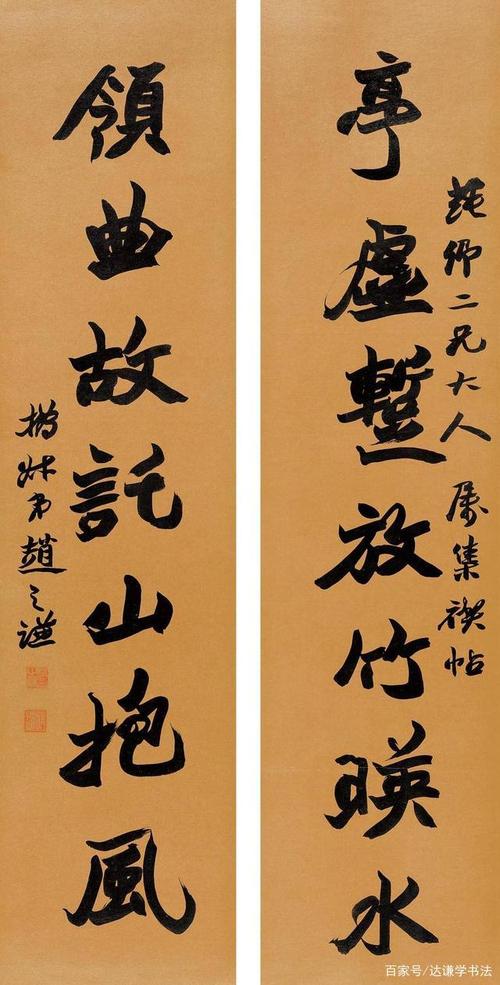 亭虛蹔放竹暎水
卿二兄大人 属集禊帖
領曲故託山抱風
撝叔弟趙之謙
百家号/达谦学书法